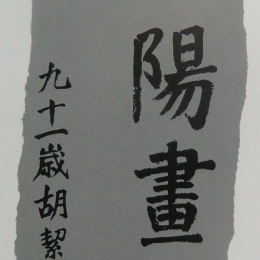 陽畫
九十一歲胡絜